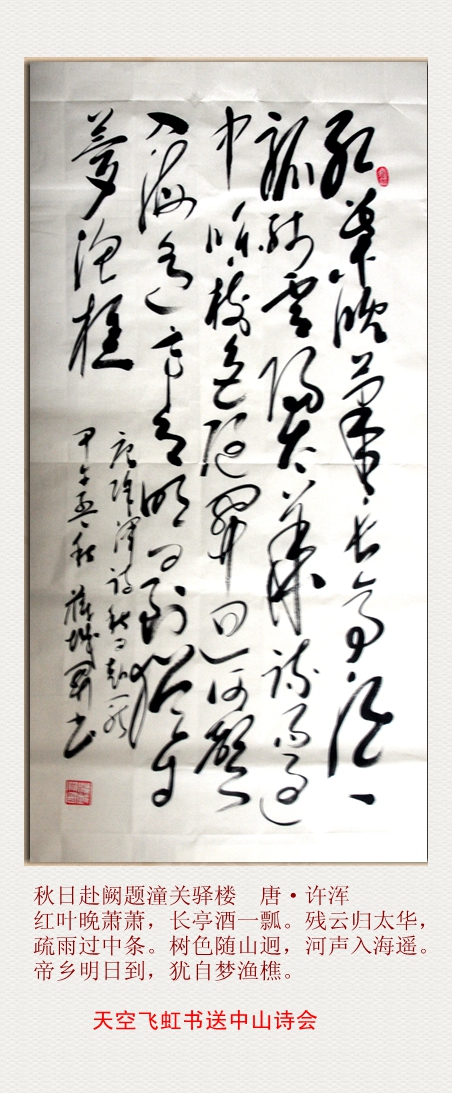 红葉晚萧萧长亭酒一
瓢残雲归太華疏雨过
中條樹色随關迥河聲
入海遥帝乡明日到犹自
夢渔樵
唐许浑诗秋日赴
甲午孟秋
秋日赴阙题潼关驿楼 唐·许浑
红叶晚萧萧，长亭酒一瓢。残云归太华，
疏雨过中条。树色随山迥，河声入海遥。
帝乡明日到，犹自梦渔樵。
天空飞虹书送中山诗会